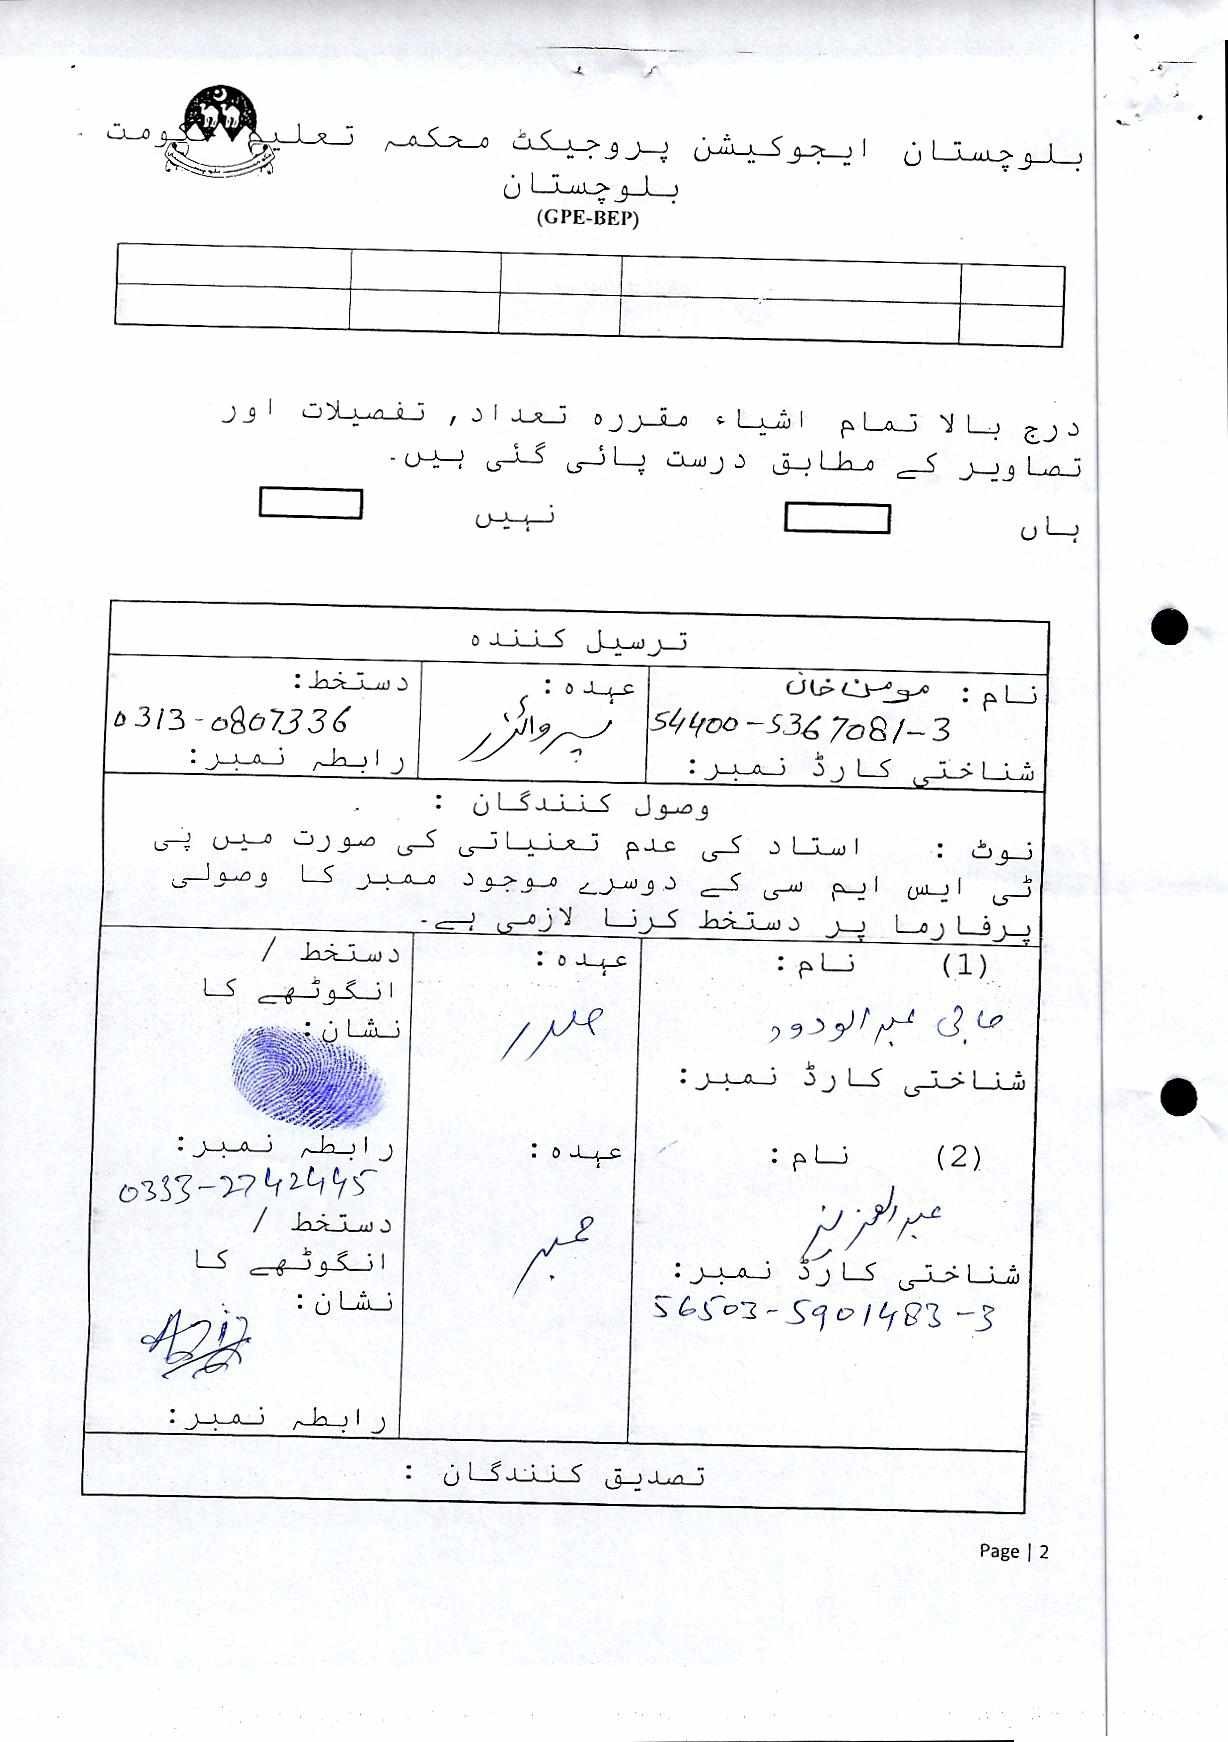 بلوچستان ایجوکیشن پروجیکٹ محکمہ تعلیم حکومت
بلوچستان
(GPE-BEP)
درج بالا تمام اشیاء مقررہ تعداد, تفصیلات اور
تصاویر کے مطابق درست پائی گئی ہیں۔
ہاں نہیں
ترسیل کنندہ
نام : مومن خان
54400-5367081-3
شناختی کارڈ نمبر:
عہدہ :
سپروائزر
دستخط:
0313-0807336
رابطہ نمبر:
وصول کنندگان :
نوٹ : استاد کی عدم تعنیاتی کی صورت میں پی
ٹی ایس ایم سی کے دوسرے موجود ممبر کا وصولی
پرفارما پر دستخط کرنا لازمی ہے۔
(1) نام :
حاجی عبدالودود
شناختی کارڈ نمبر:
عہدہ :
صدر
دستخط /
انگوٹھے کا
نشان :
رابطہ نمبر:
0333-2742445
(2) نام :
عبدالعزیز
شناختی کارڈ نمبر:
56503-5901483-3
عہدہ :
ممبر
دستخط /
انگوٹھے کا
نشان :
Aziz
رابطہ نمبر:
تصدیق کنندگان :
Page | 2